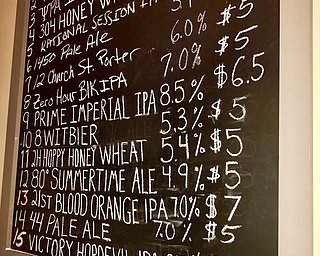 4 304 HONEY
5 NATIONAL SESSION
6 1450 Pale Ale 6.0% $5
7 12 Church St. Porter 7.0% $5
8 Zero Hour BlK IPA 8.5% $6.5
9 PRIME IMPERIAL IPA 5.3% $5
10 8 WITBIER 5.4% $5
11 2H HOPPY HONEY WHEAT 4.9% $5
12 80° SUMMERTIME ALE
13 21ST BLOOD ORANGE IPA 7.0% $7
14 44 PALE ALE 7.0% $5
15 VICTORY HOPDEVIL IPA